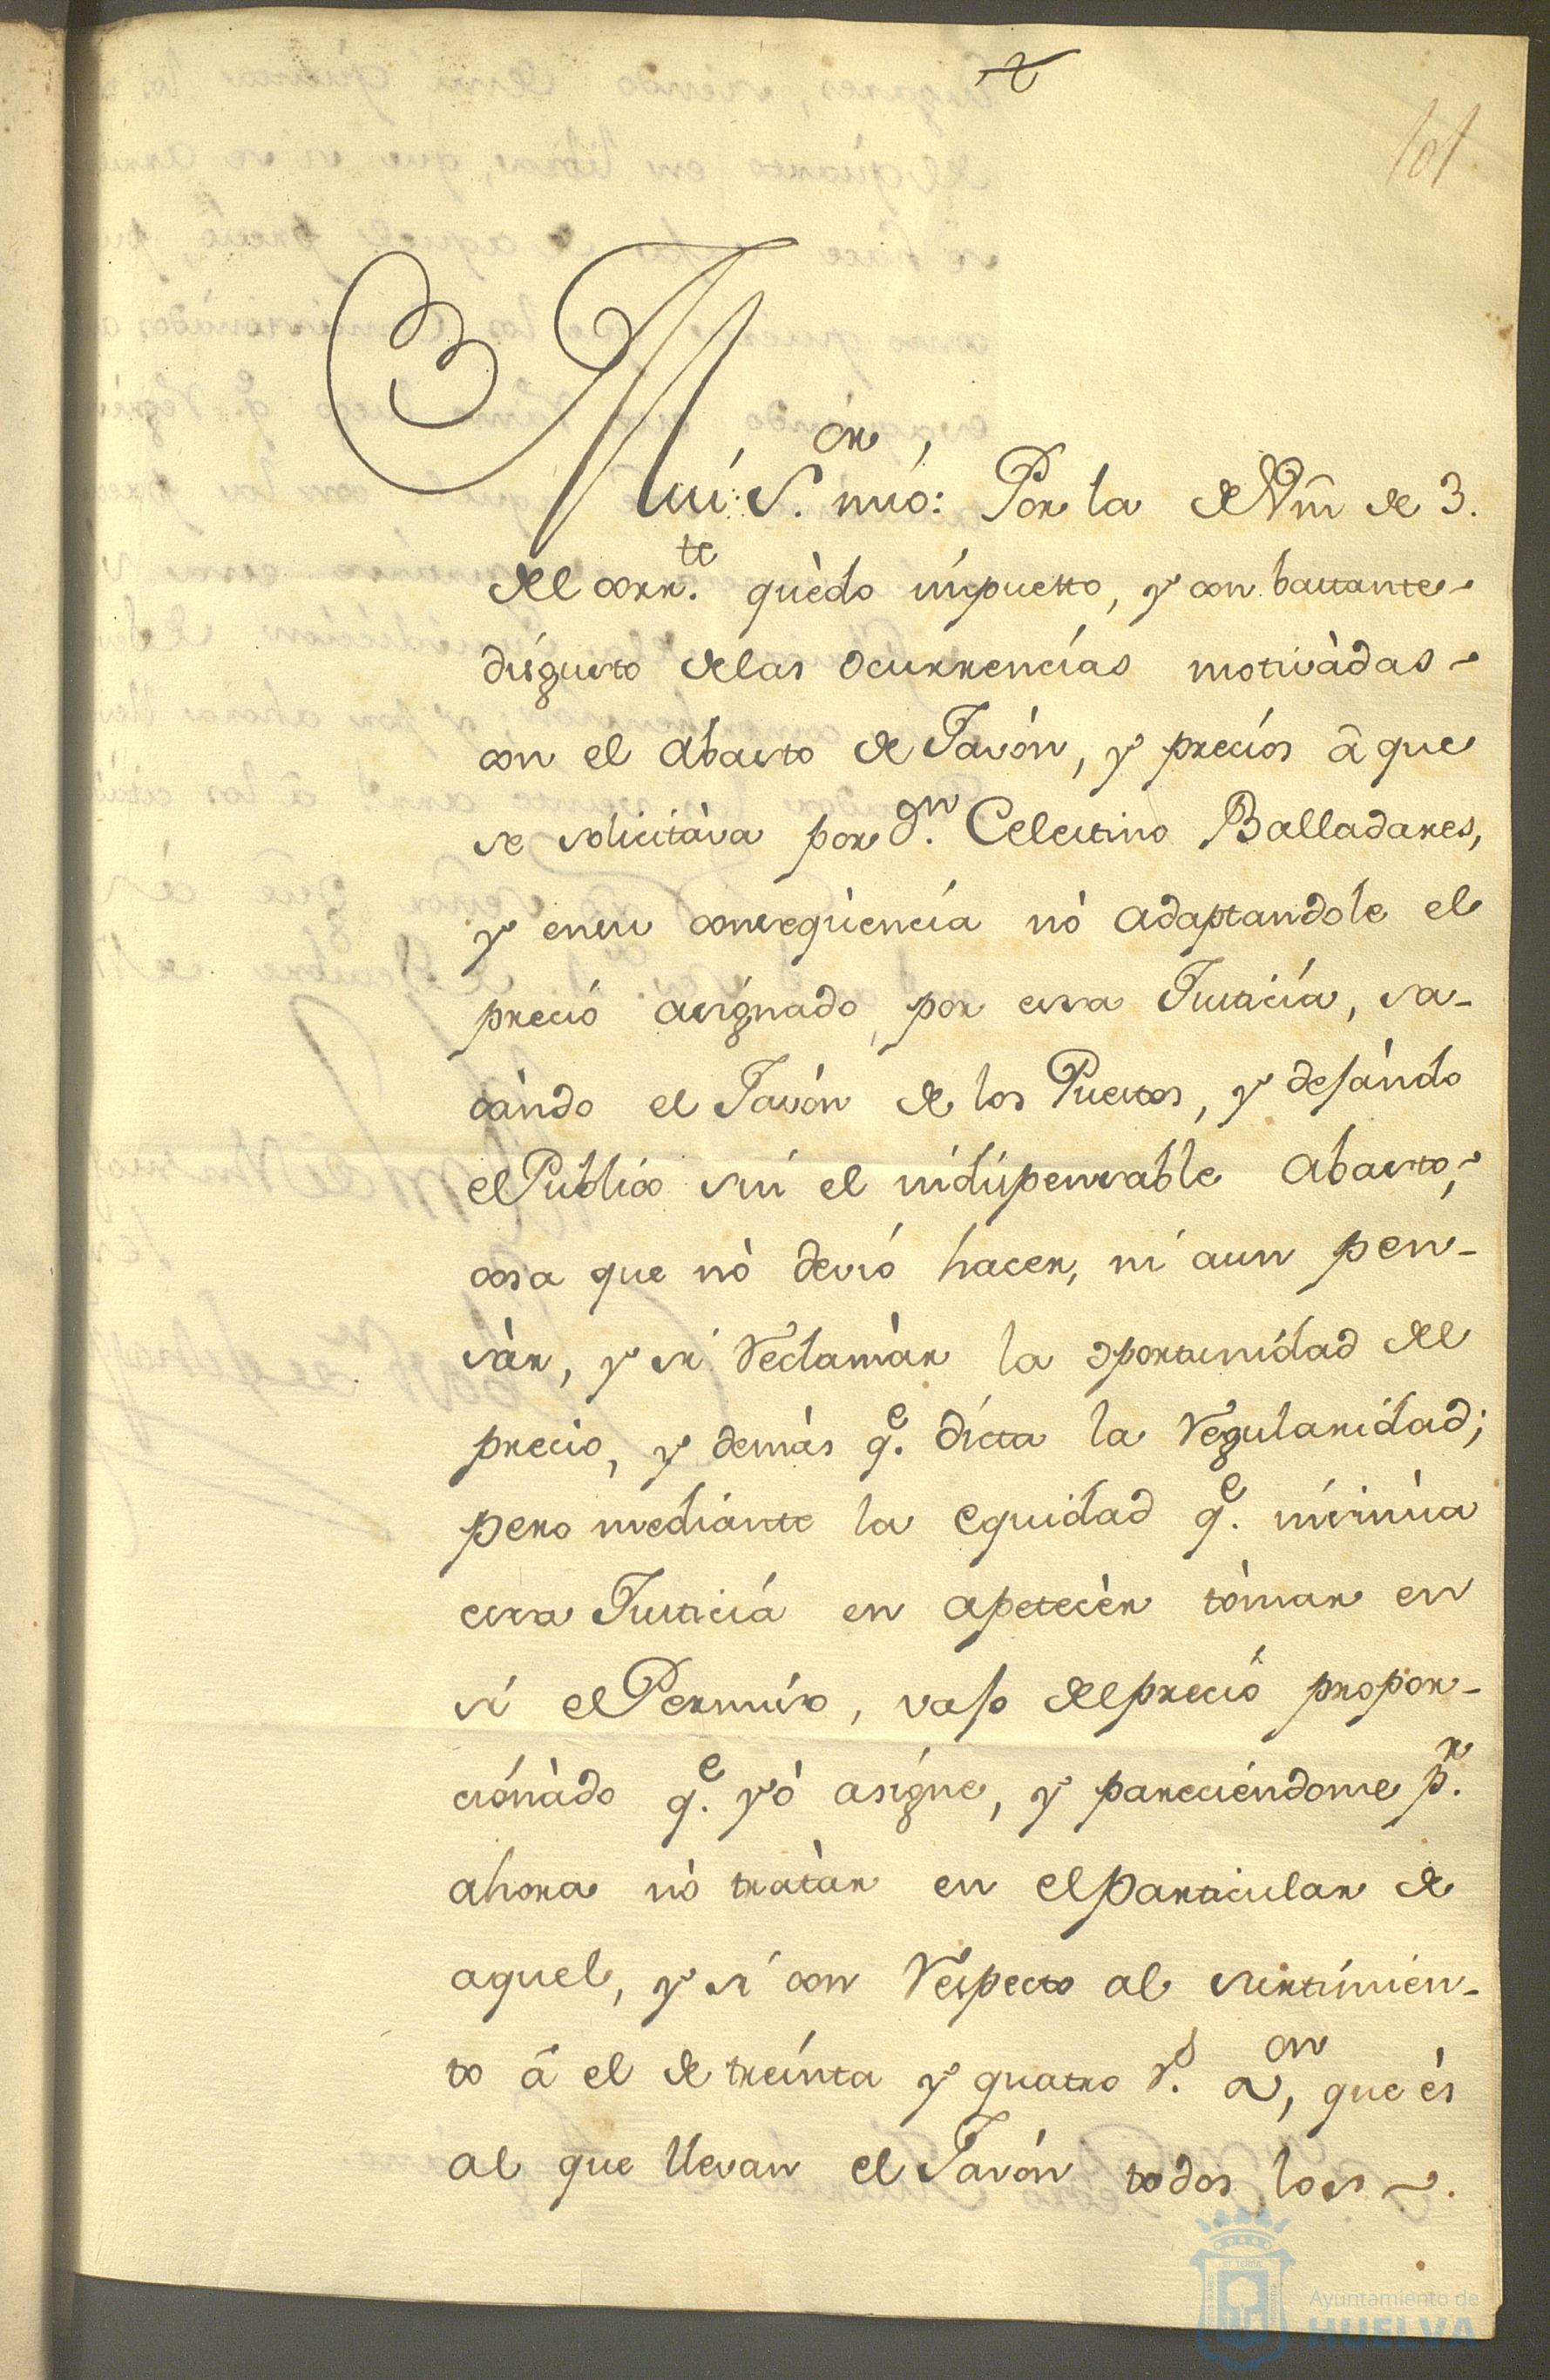 101
Mui S.or mió: Por la de Vm̃ de 3.
del corr.te quèdo impuesto, y con bastante
disgusto delas ocurrencías motivàdas
con el Abasto de Javón, y precíos â que
se solicitàva por d.n Celestino Balladares,
y ensu conseqùencía nò adaptandole el
preció asígnado por essa Justicía, sa-
càndo el Javòn de los Puestos, y dejàndo
el Publico sin el indispensable Abasto,
cosa que nò devió hacer, ni aun pen-
sàr, y si reclamàr la oportunidad del
precio, y demàs q.e dícta la regularidad;
pero mediante la equidad q.e insinùa
essa Justiciá en apetecèr tòmar en
sí el Permiso, vajo del preció propor-
cionàdo q.e yò asígne, y pareciéndome p.r
ahora nò tratàr en el particular de
aquel, y si con respecto al surtimien-
to â el de treínta y quatro r.s von, que ès
al que llevan el Javòn todos los
Ayuntamiento de
HUELVA